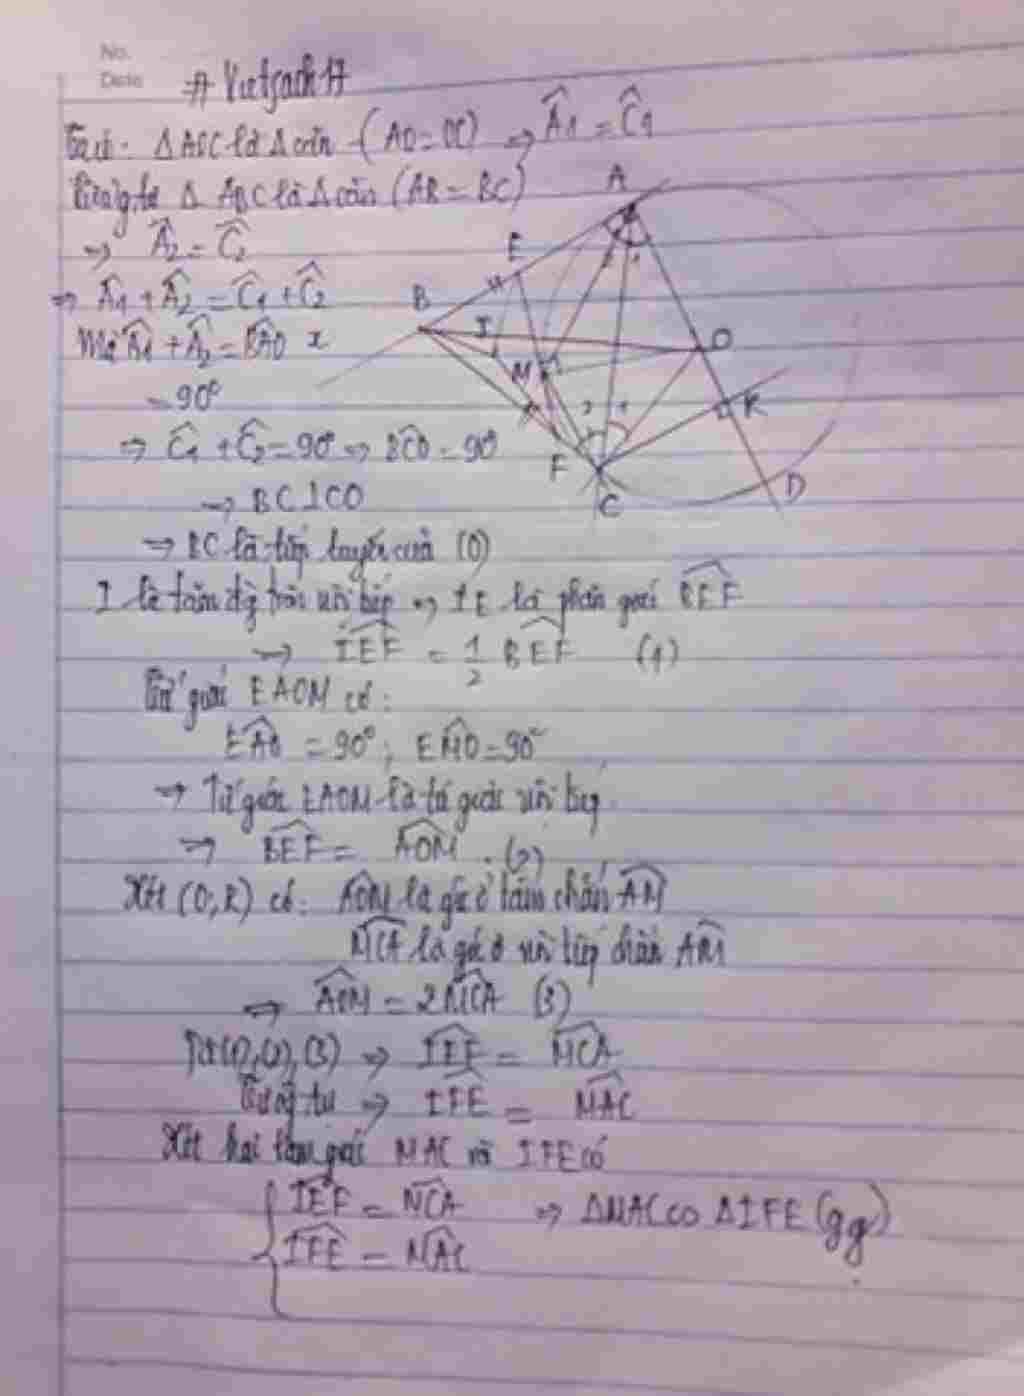 No.
Date
# Vietsach17
Ta có: Δ AOC là Δ cân (AO = OC) ⇒ Â1 = Ĉ1
Tương tự Δ ABC là Δ cân (AB = BC)
⇒ Â2 = Ĉ2
⇒ Â1 + Â2 = Ĉ1 + Ĉ2
Mà Â1 + Â2 = BAO
= 90°
⇒ Ĉ1 + Ĉ2 = 90° ⇒ BCO = 90°
⇒ BC ⊥ CO
⇒ BC là tiếp tuyến của (O)
I là tâm đg tròn nội tiếp ⇒ IE là phân giác BEF
⇒ IEF = 1/2 BEF (1)
Tứ giác EAOM có:
EAO = 90°; EMO = 90°
⇒ Tứ giác EAOM là tứ giác nội tiếp
⇒ BEF = AOM (2)
Xét (O, R) có: AOM là góc ở tâm chắn AM
MCA là góc nội tiếp chắn AM
⇒ AOM = 2 MCA (3)
Từ (1), (2), (3) ⇒ IEF = MCA
Tương tự ⇒ IFE = MAC
Xét hai tam giác MAC và IFE có
IEF = MCA ⇒ ΔMAC ∽ ΔIFE (gg)
IFE = MAC
A
E
B
I
O
M
2 1
K
F
C
D